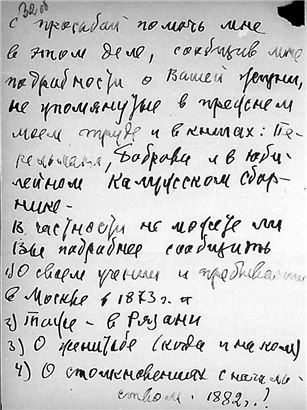 32 об
с просьбой помочь мне
в этом деле, сообщив мне
подробности о Вашей жизни,
не упомянутые в прежнем
моем труде и в книгах: Пе-
рельмана, Боброва и в юби-
лейном Калужском сбор-
нике.
В частности не можете ли
Вы подробнее сообщить
1) О своем учении и пребывании
в Москве в 1873 г. и
2) Тоже - в Рязани
3) О женитьбе (когда и на ком)
4) О столкновениях с началь-
ством. 1882 г.?